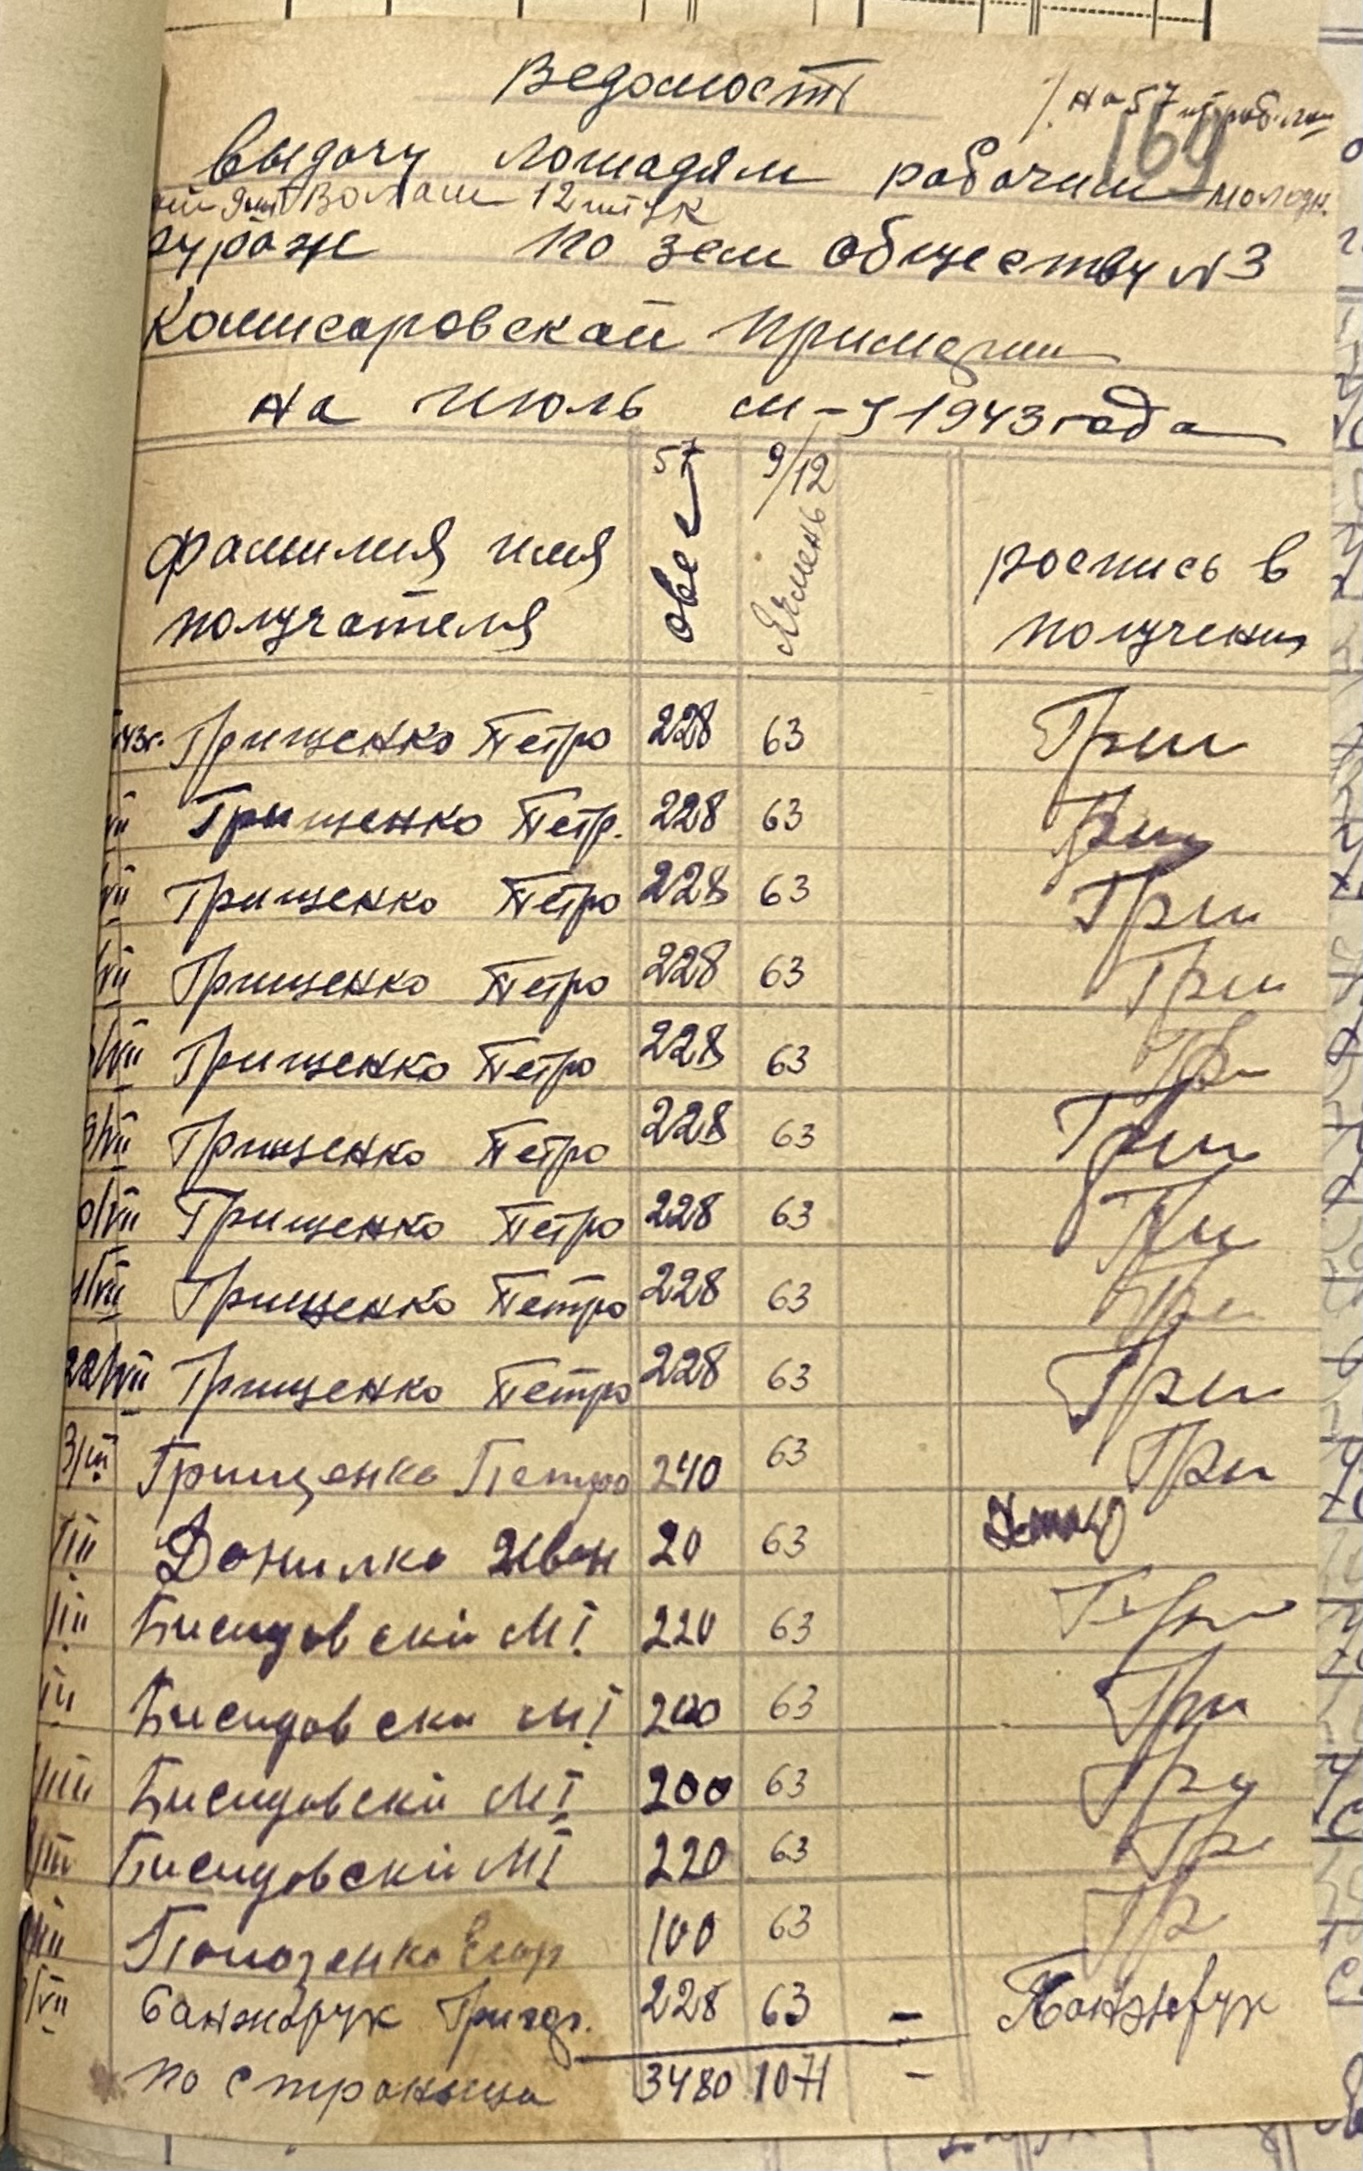 Ведомость
169
На 57 шт раб. лош
Выдачу лошадям рабочим молодн.
Волам 12 штук
фураж по зем обществу N 3
Комисаровской Примэрии
на июль м-ц 1943 года
фамилия имя получателя
овес 57
Ячмень 9/12
роспись в получении
43г. Грищенко Петро 228 63 Гри
VII Грищенко Петр. 228 63 Грищ
VII Грищенко Петро 228 63 Гри
VII Грищенко Петро 228 63 Гри
/VII Грищенко Петро 228 63 Гри
/VII Грищенко Петро 228 63 Гри
0/VII Грищенко Петро 228 63 Гри
1/VII Грищенко Петро 228 63 Гри
22/VII Грищенко Петро 228 63 Гри
3/VII Грищенко Петро 240 63 Гри
VII Данилко Иван 20 63
VII Бисидовски М І 220 63 Гри
VII Бисидовски М І 200 63 Гри
VII Бисидовски М І 200 63 Гри
VII Бисидовски М І 220 63 Гр
VII Егор 100 63 Гр
/VII Банжарук Григор. 228 63 – Банжарук
по страница 3480 1071 –